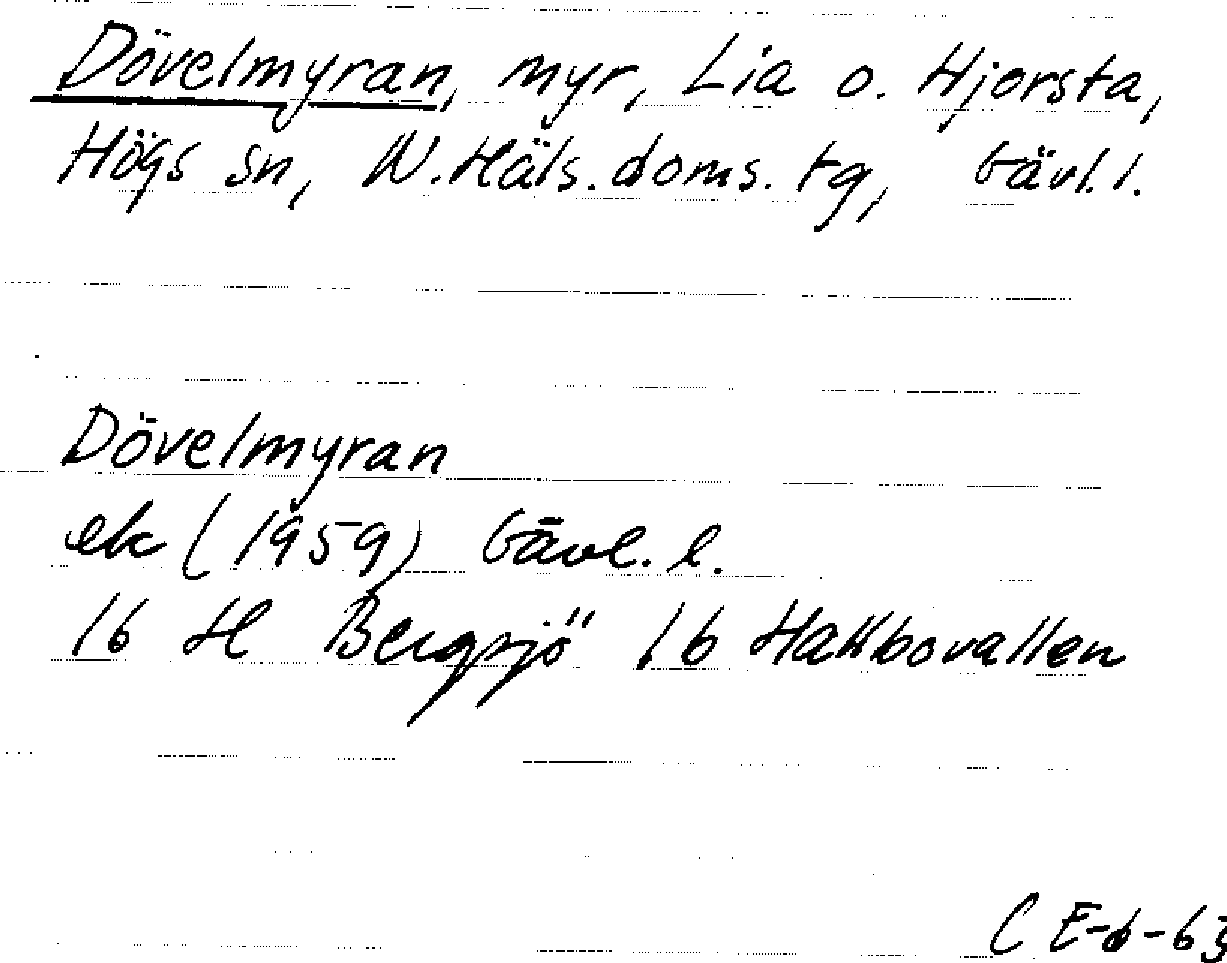 Dövelmyran, myr, Lia o. Hjorsta,
Högs sn, N. Häls. doms. tg, Gävl. l.
Dövelmyran
ek (1959) Gävl. l.
16 H Bergsjö 1 b Hallbovallen
C E-6-63